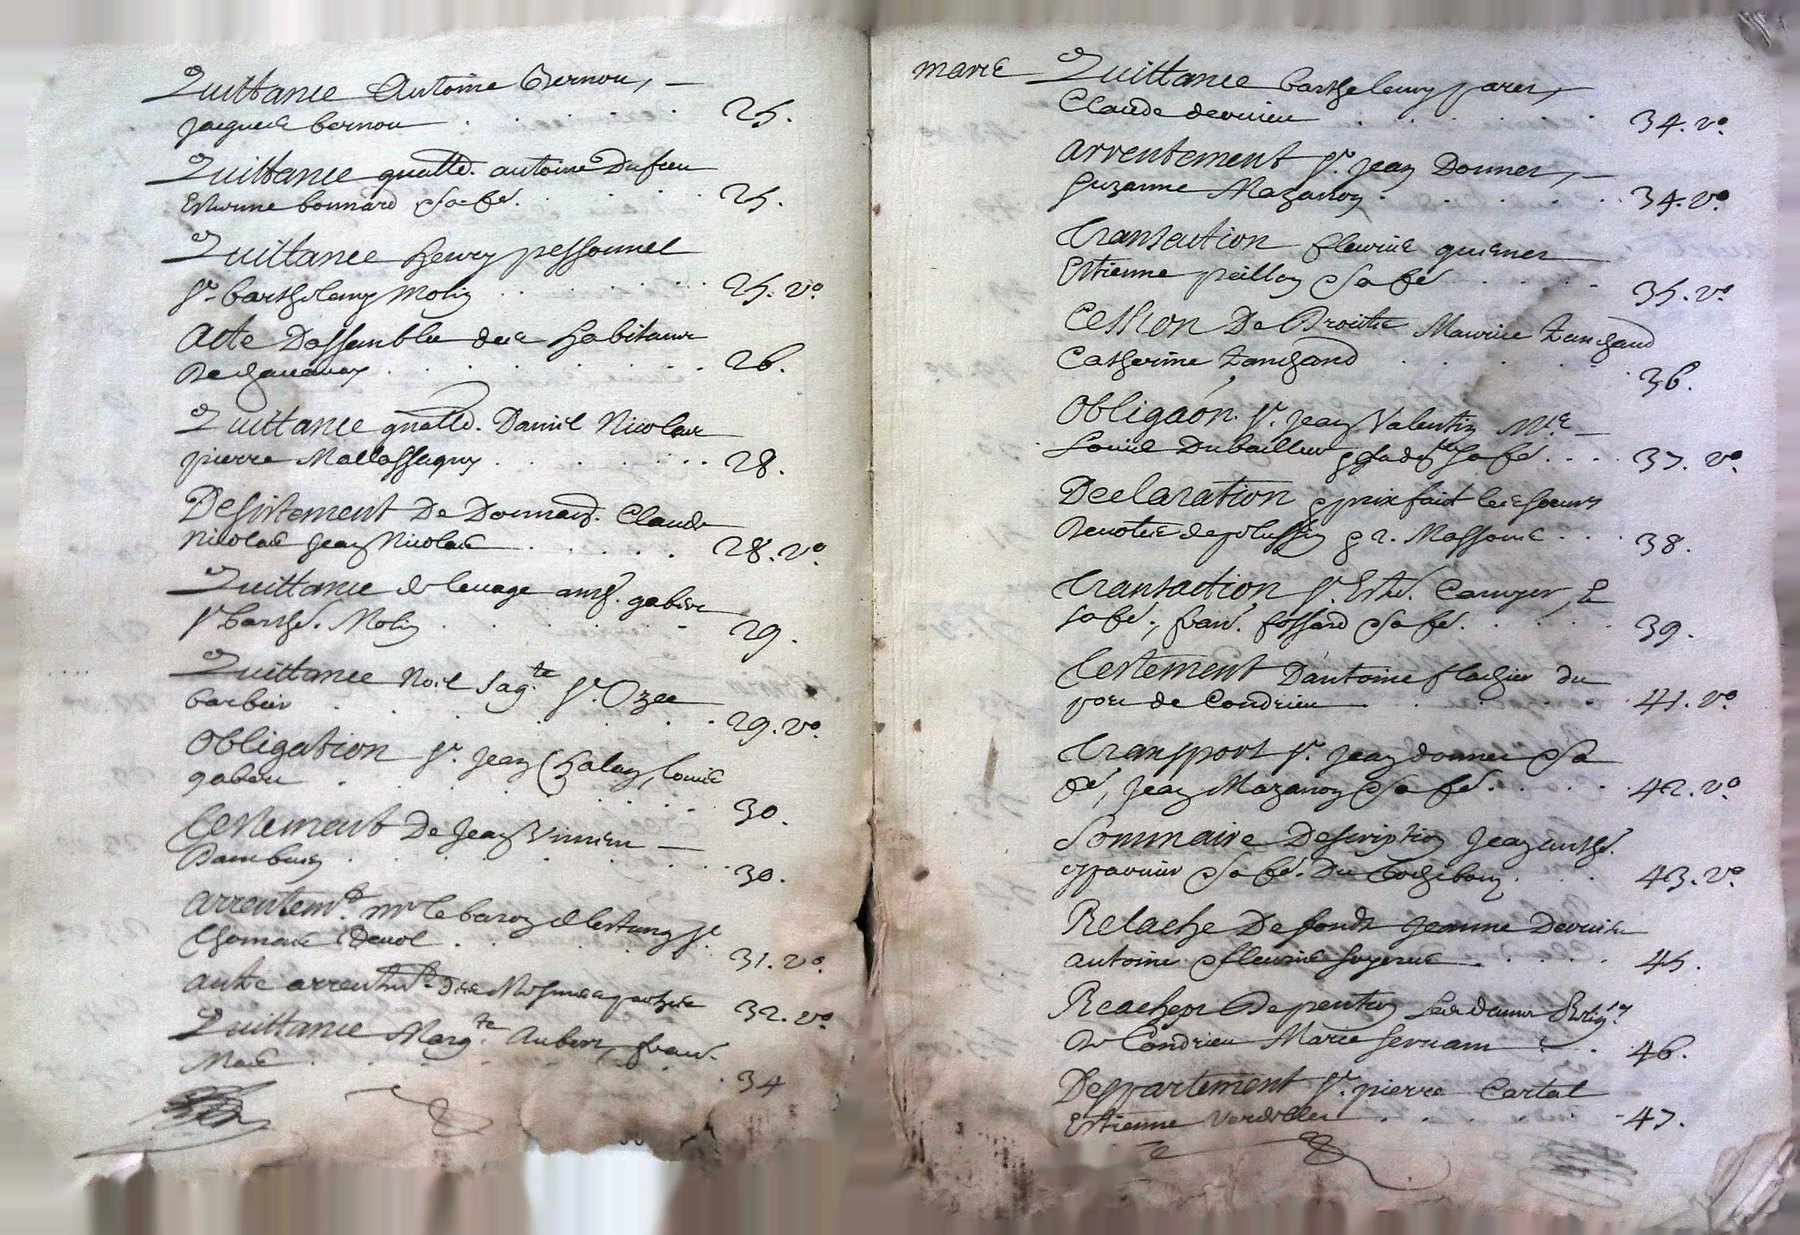 Quittance Antoine Bernou, –
Jacques bernou . . . . . . 25.
Quittance quattd. antoine Dufieu
Estienne bonnard & sa fe. . . . . 25.
Quittance henry pessonnel
Sr. barthelemy Molin . . . . . 25. vo.
Acte Dassemblée des habitans
De . . . . . . 26.
Quittance quattd. Daniel Nicolas
pierre Mallassagny . . . . . . 28.
Desistement De Donnaõn. Claude
Nicolas Jean Nicolas . . . . . 28. vo.
Quittance & louage anth. gabert
Sr barthe. Molin . . . . . . 29.
Quittance Noel Sag.te Sr. Ozee
barbier . . . . . . . 29. vo.
Obligation Sr. Jean Chaley, louis
gabert . . . . . . . 30.
Testement De Jean Vinien –
Dambuin . . . . . . . 30.
Arrentemt. mr le baron & lestang Sr
Thomas Devol . . . . . . 31. vo.
autre arrentmt. Des Mesmes parties 32. vo.
Quittance Marg.te Aubert, fran.
Mas . . . . . . . 34
mars Quittance barthelemy paret,
Claude dervieu . . . . . . 34. vo.
Arrentement Sr. Jean Donnet, –
Suzanne Mazanon . . . . . . 34. vo.
Transaction fleurie quiener
Estienne peillon & sa fe . . . . . 35. vo.
Cession De Droits Maurice Zanchand
Catherine Zanchand . . . . . 36.
Obligaõn. Sr. Jean Valentin Mre –
Louis Dubailleur & sa fe. . . . 37. vo.
Declaration & prixfait les soeurs
Benoites de pelussin & r. Massons . . . 38.
Transaction Sr. Este. Caruyer, &
sa fe., fran. fossard & sa fe. . . . . 39.
Testement D'antoine flachier du
port de Condrieu . . . . . 41. vo.
Transport Sr. Jean donnet & sa
fe, Jean Mazanon & sa fe. . . . . 42. vo.
Sommaire Description Jean anthe.
& sa fe. Du . . . 43. vo.
Relache De fonds Jeanne Dervieu
antoine & fleurie . . . . . 45.
Reachept De pention les dames Relig.
De Condrieu Marie Servant . . . 46.
Deppartement Sr. pierre Cartal
Estienne Verdellet . . . . . . 47.